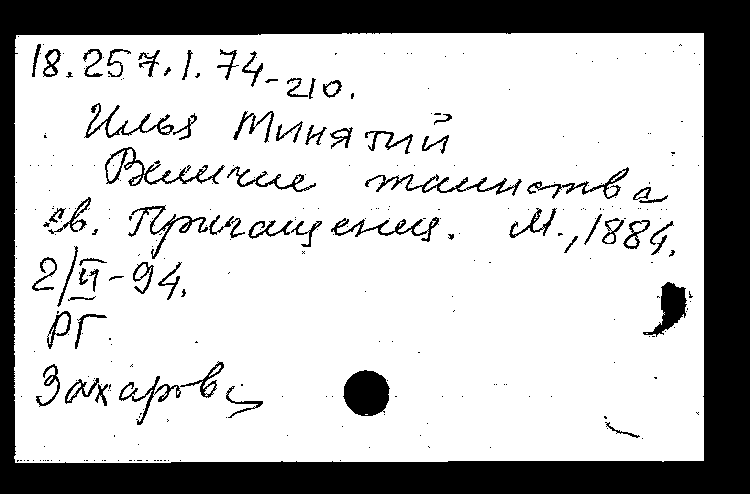 18.257.1.74-210.
Илья Минятий
Величие таинства
св. Причащения. М., 1884.
2/II-94.
РГ
Захарова